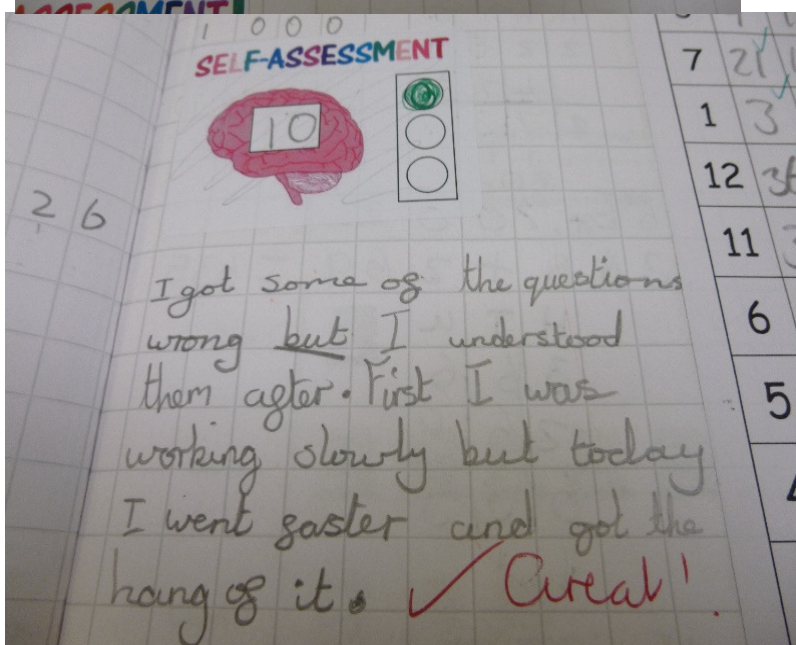 ASSESSMENT
1 0 0 0
SELF-ASSESSMENT
10
2 6
7 21
1 3
12 36
11 3
6
5
I got some of the questions
wrong but I understood
them after. First I was
working slowly but today
I went faster and got the
hang of it. ✓ Great!